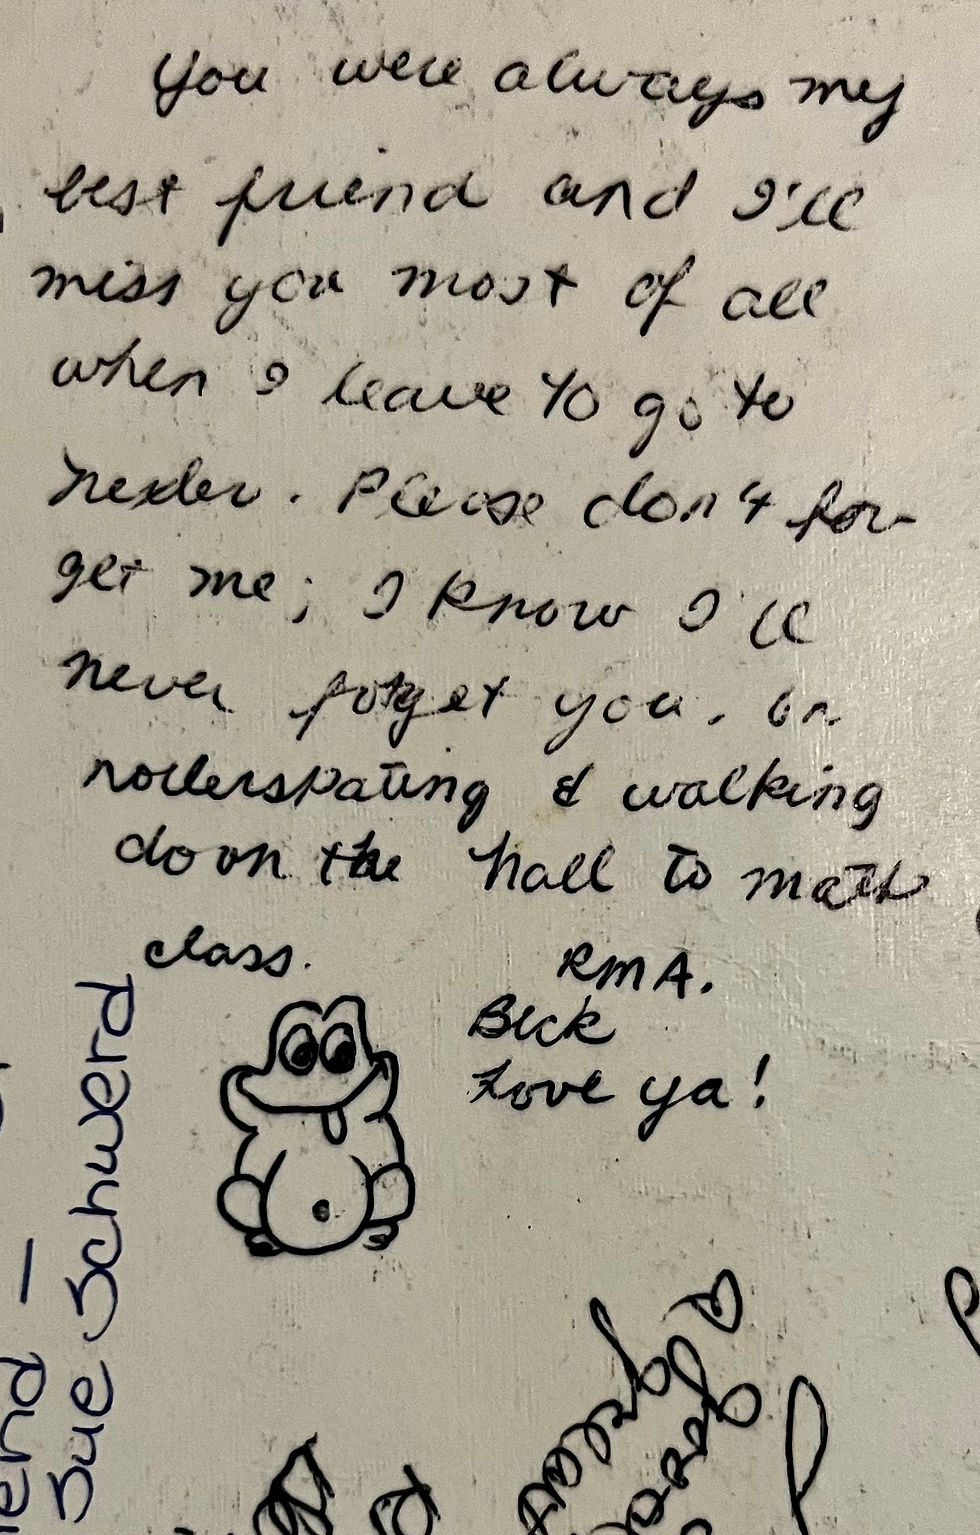 you were always my
best friend and I'll
miss you most of all
when I leave to go to
Hexler. Please don't for-
get me; I know I'll
never forget you, or
rollerskating & walking
down the hall to math
class.
RMA.
Beck
Love ya!
Sue Schwerd